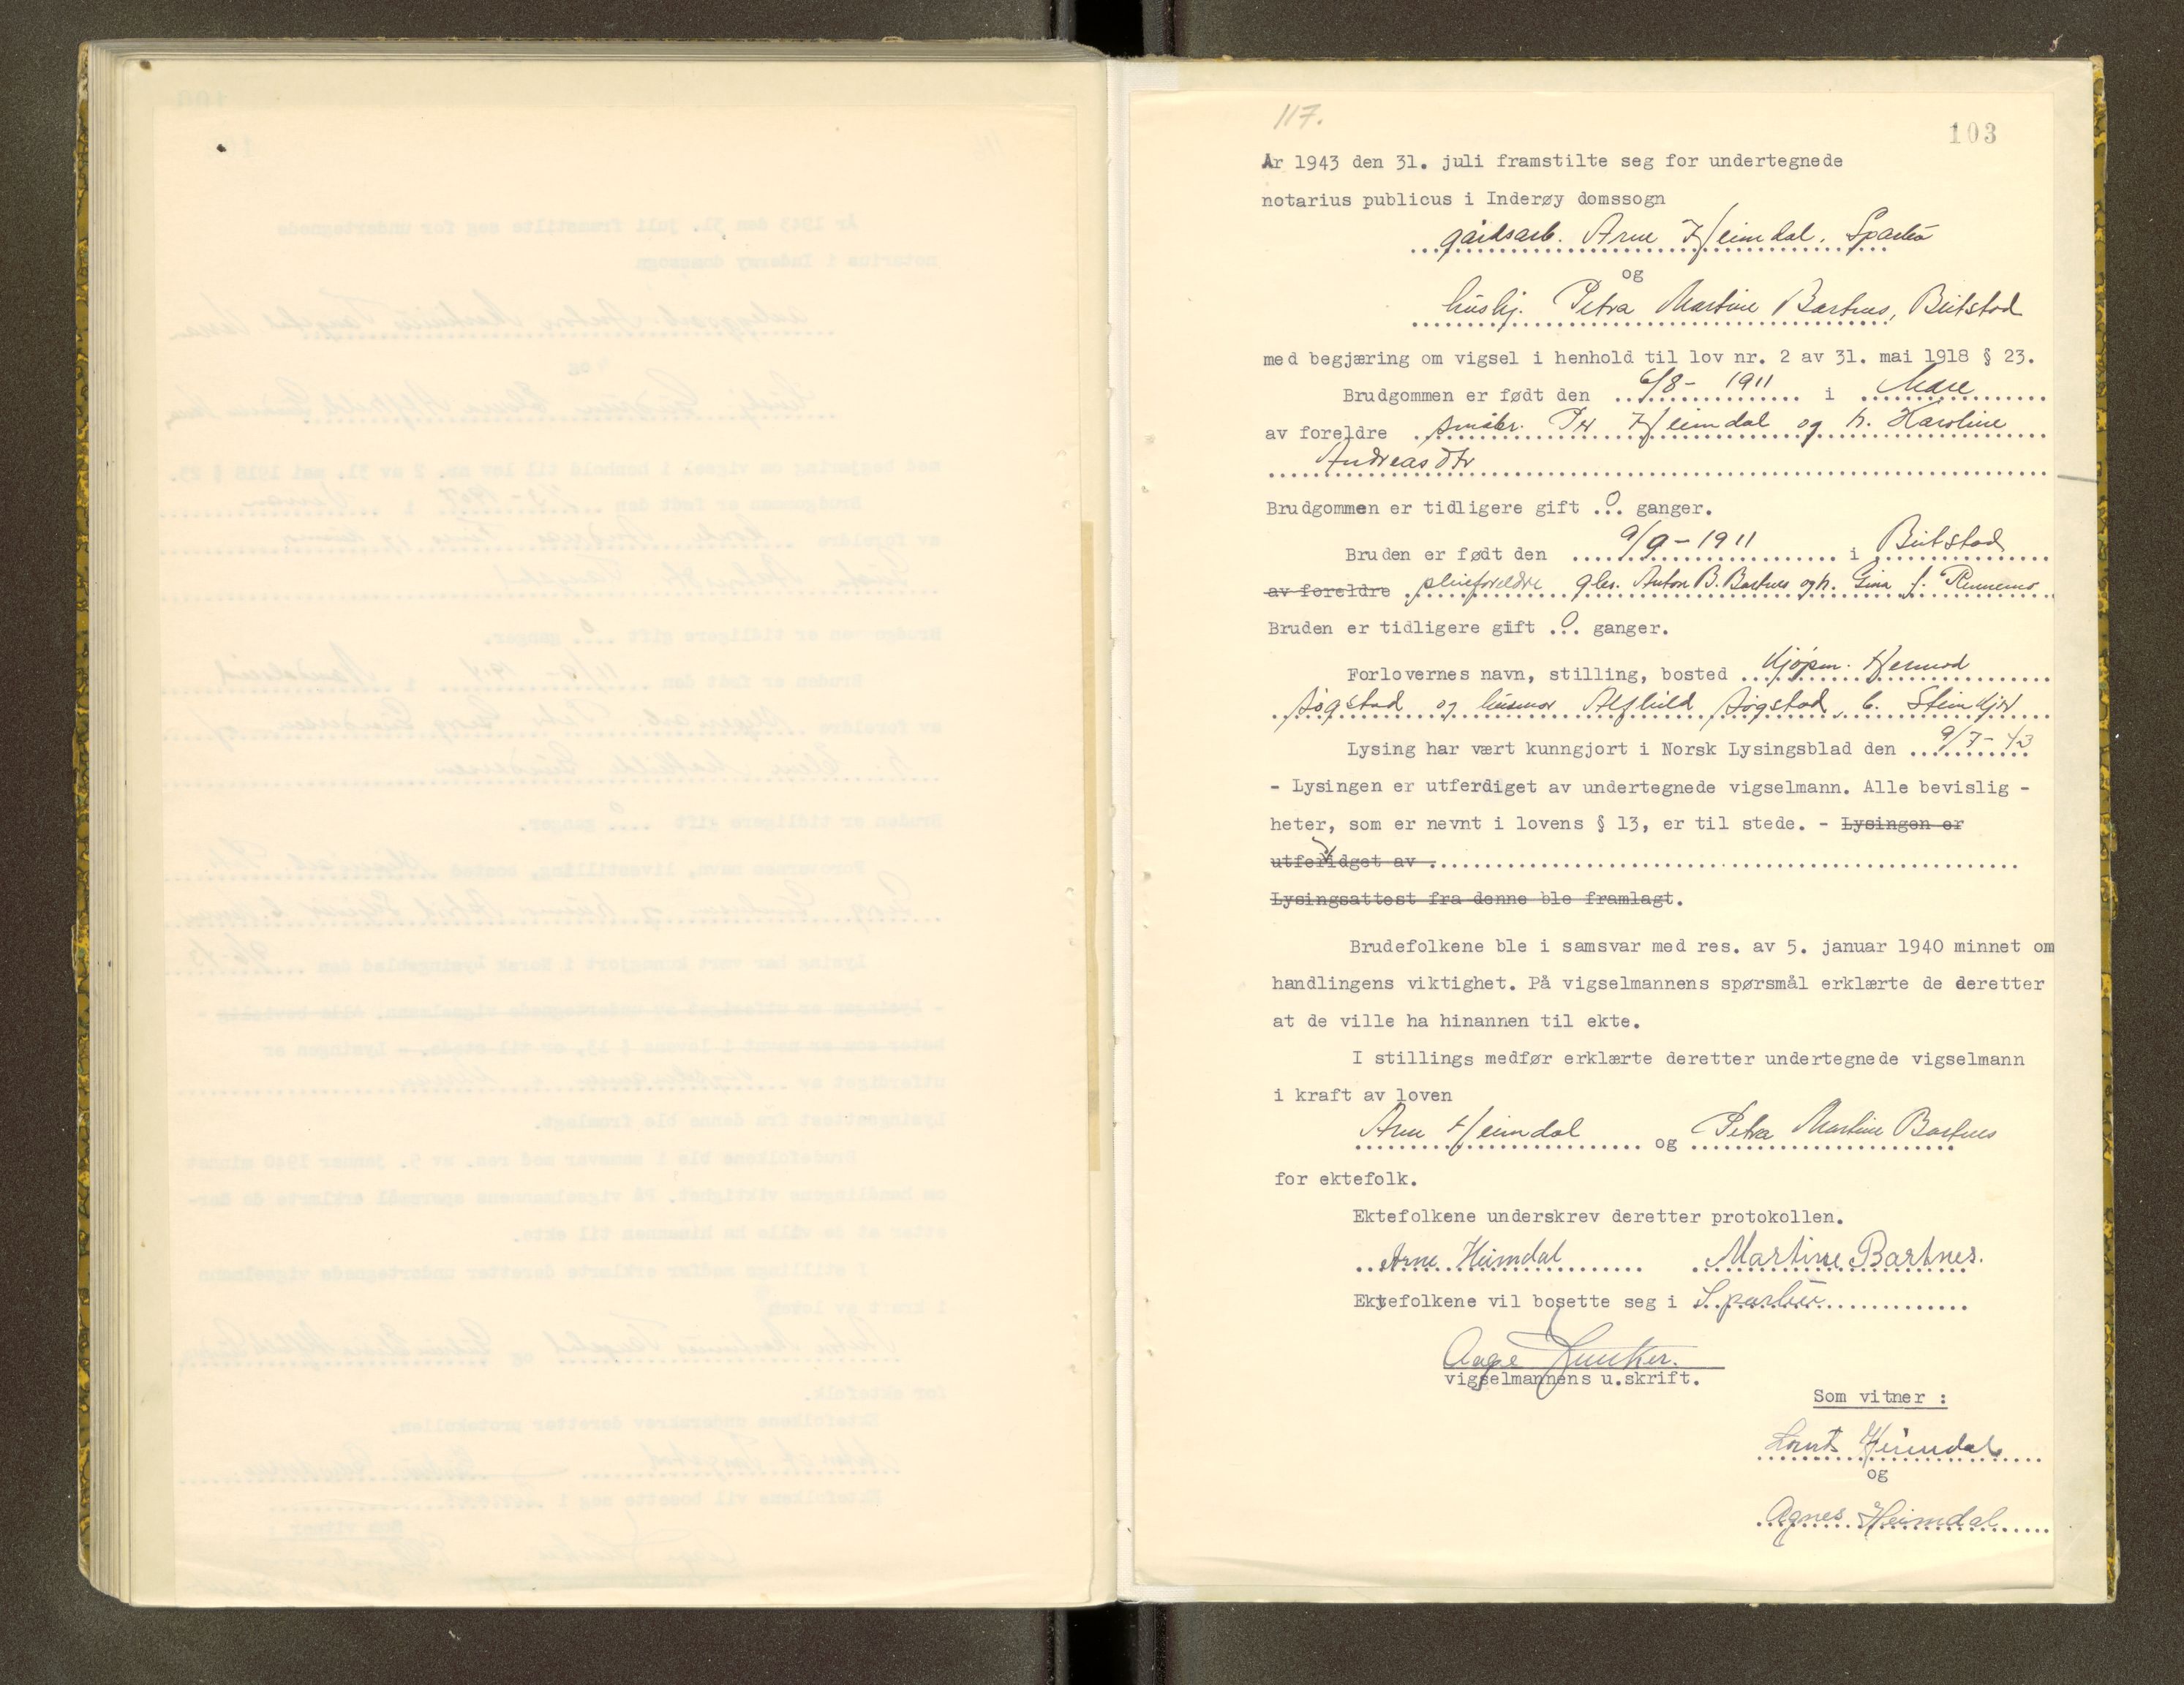 117.
103
År 1943 den 31. juli framstilte seg for undertegnede
notarius publicus i Inderøy domssogn
gårdsarb. Arne Heimdal, Sparbu
og
hushj. Petra Martine Bartnes, Beitstad
med begjæring om vigsel i henhold til lov nr. 2 av 31. mai 1918 § 23.
Brudgommen er født den 6/8 - 1911 i Mære
av foreldre småbr. Per Heimdal og h. Karoline
Andreasdtr
Brudgommen er tidligere gift .0. ganger.
Bruden er født den 9/9 - 1911 i Beitstad
av foreldre pleieforeldre gbr. Anton B. Bartnes og h. Gina f.
Bruden er tidligere gift .0. ganger.
Forlovernes navn, stilling, bosted kjøpm. Hermod
Søgstad og husmor Alfhild Søgstad, b. Steinkjer
Lysing har vært kunngjort i Norsk Lysingsblad den 9/7 - 43
- Lysingen er utferdiget av undertegnede vigselmann. Alle bevislig -
heter, som er nevnt i lovens § 13, er til stede. - Lysingen er
utferidget av
Lysingsattest fra denne ble framlagt.
Brudefolkene ble i samsvar med res. av 5. januar 1940 minnet om
handlingens viktighet. På vigselmannens spørsmål erklærte de deretter
at de ville ha hinannen til ekte.
I stillings medfør erklærte deretter undertegnede vigselmann
i kraft av loven
Arne Heimdal og Petra Martine Bartnes
for ektefolk.
Ektefolkene underskrev deretter protokollen.
Arne Heimdal Martine Bartnes.
Ektefolkene vil bosette seg i Sparbu
Aage
vigselmannens u.skrift.
Som vitner :
Heimdal
og
Agnes Heimdal